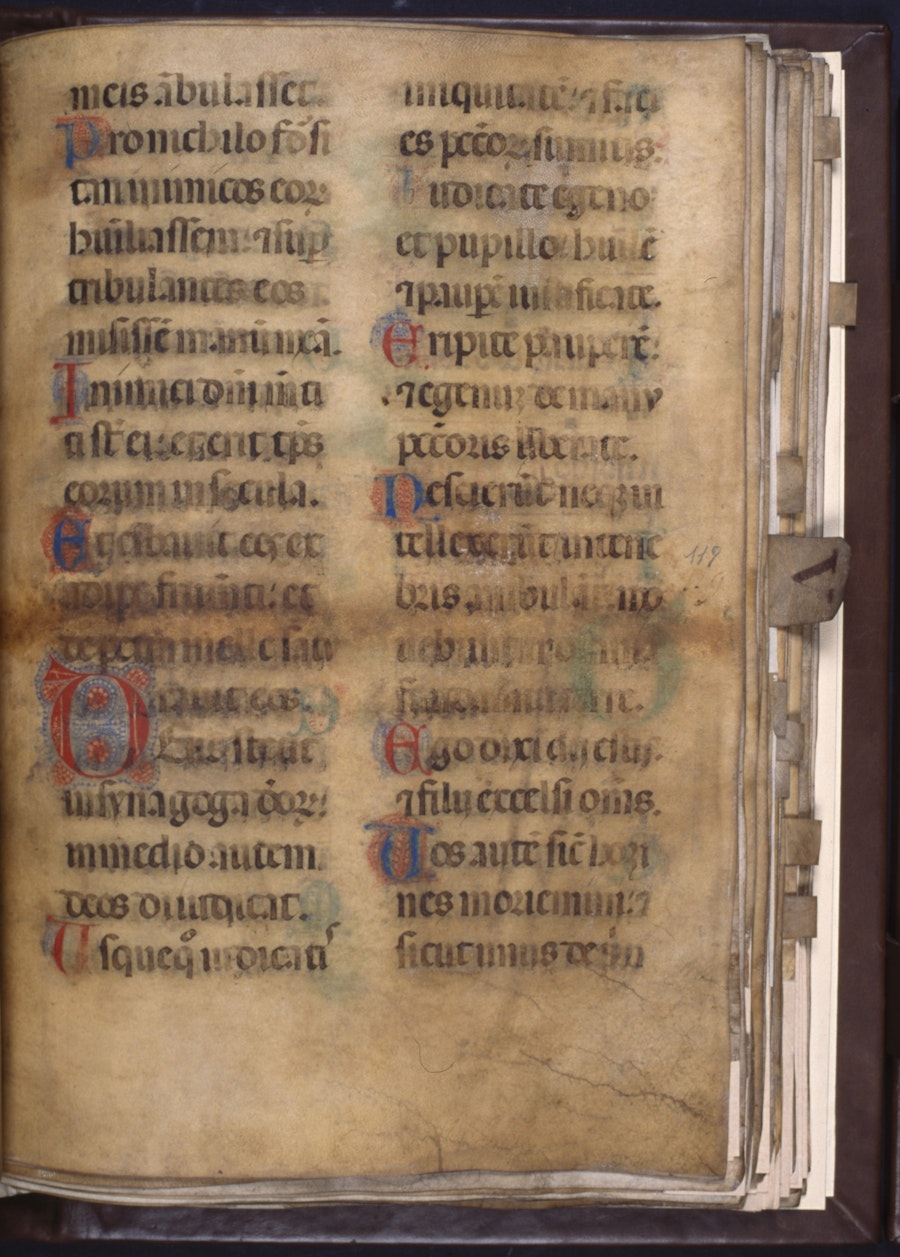 meis ãbulassẽt.
Pro nichilo fõsi
tan inimicos eoꝝ
hũiliassem: ⁊ suꝑ
tribulantes eos
misissẽ manũ meã.
Inimici dñi mẽti
ti sũt ei: ⁊ erit tp̃s
eorum in secula.
Et cibauit eos ex
adipe frumẽti: et
de petra melle satu
rauit eos.
Deus stetit
in synagoga deoꝝ:
in medio autem
deos diiudicat.
Usqueq̊ iudicatis
iniquitatẽ: ⁊ faci
es pccõꝝ sumitis.
Iudicate egeno
et pupillo: humilẽ
⁊ pauꝑẽ iustificate.
Eripite pauperẽ:
⁊ egenũ de manu
pccõris liberate.
Nescierũt neqꝫ in
tellexerũt in tene
bris ambulant: mo
uebuntur omnia
fundamenta terre.
Ego dixi dij estis:
⁊ filii excelsi om̃s.
Uos autẽ sic̃ homi
nes moriemini: ⁊
sicut unus de prin
119